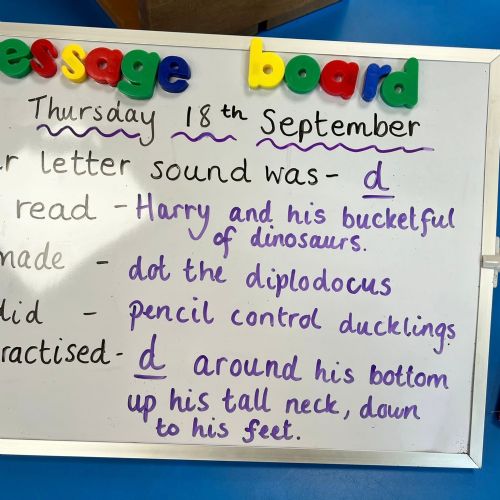 essage board
Thursday 18th September
r letter sound was- d
read - Harry and his bucketful
of dinosaurs.
made - dot the diplodocus
did - pencil control ducklings
ractised- d around his bottom
up his tall neck, down
to his feet.